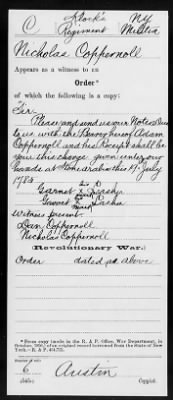 C Klock's NY
Regiment Militia
Nicholas Coppernoll
Appears as a witness to an
Order*
of which the following is a copy:
Sir
Please and send us our Notes Due
to us with the Bearer hereof Adam
Coppernoll and his Receipt shall be
your discharge given under our
hands at this 19. July
1784
his
Garnet x
his
x
mark
Witness present
Dan Coppernoll
Nicholas Coppernoll
(Revolutionary War.)
Order dated as above
* From copy (made in the R. & P. Office, War Department, in
October, of an original record borrowed from the State of New
York.—R. & P.
6 Austin
Copyist.